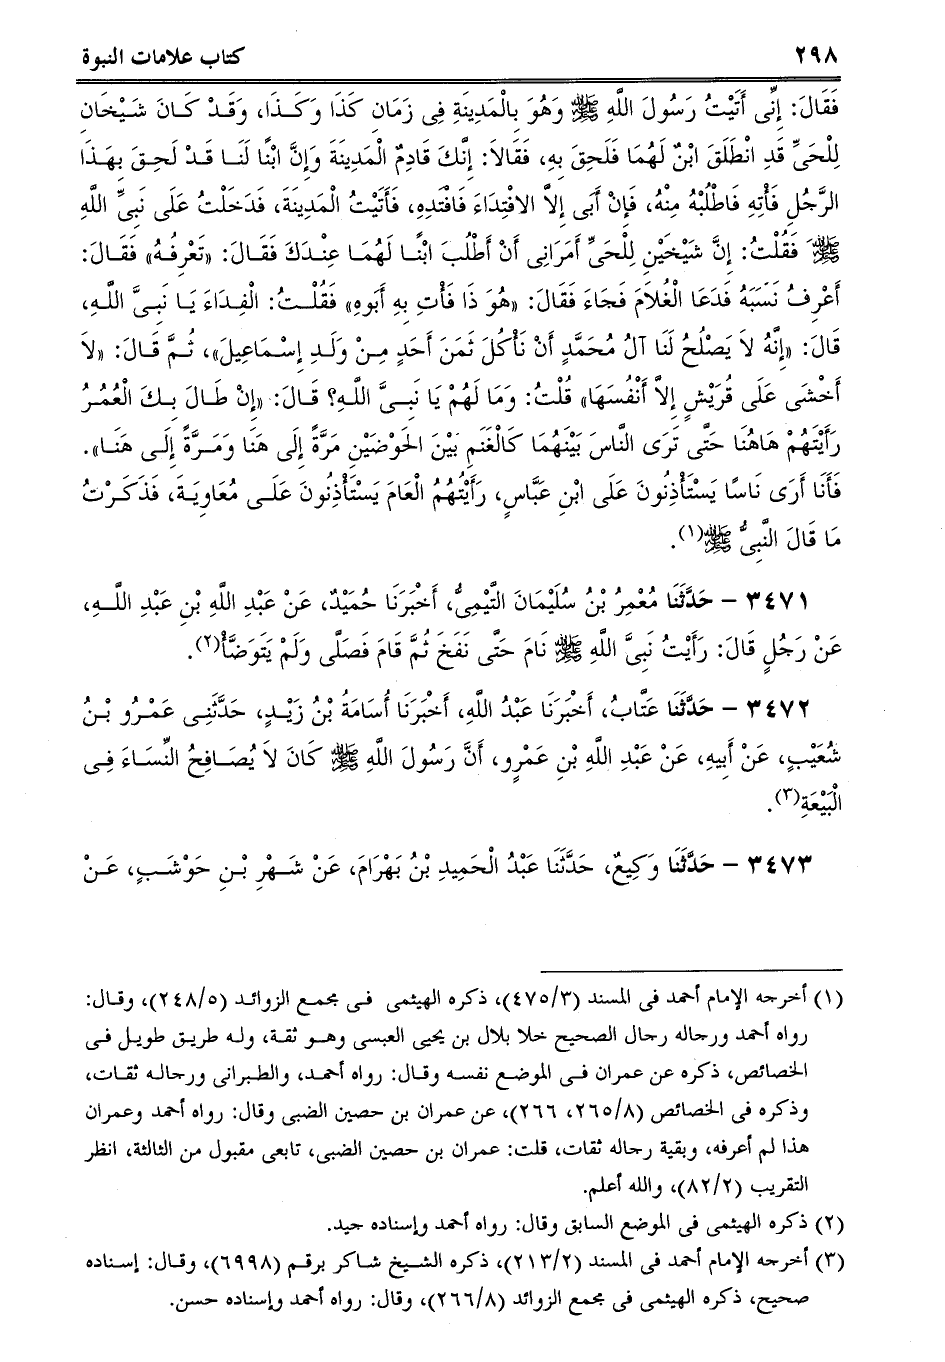 ٢٩٨ كتاب علامات النبوة
فَقَالَ: إِنِّى أَتَيْتُ رَسُولَ اللَّهِ ﷺ وَهُوَ بِالْمَدِينَةِ فِى زَمَانِ كَذَا وَكَذَا، وَقَدْ كَانَ شَيْخَان
لِلْحَىِّ قَدِ انْطَلَقَ ابْنٌ لَهُمَا فَلَحِقَ بِهِ، فَقَالاَ: إِنَّكَ قَادِمٌ الْمَدِينَةَ وَإِنَّ ابْنًا لَنَا قَدْ لَحِقَ بِهَذَا
الرَّجُلِ فَأْتِهِ فَاطْلُبْهُ مِنْهُ، فَإِنْ أَبَى إِلاَّ الافْتِدَاءَ فَافْتَدِهِ، فَأَتَيْتُ الْمَدِينَةَ، فَدَخَلْتُ عَلَى نَبِىِّ اللَّهِ
ﷺ فَقُلْتُ: إِنَّ شَيْخَيْنِ لِلْحَىِّ أَمَرَانِى أَنْ أَطْلُبَ ابْنًا لَهُمَا عِنْدَكَ فَقَالَ: «تَعْرِفُهُ» فَقَالَ:
أَعْرِفُ نَسَبَهُ فَدَعَا الْغُلاَمَ فَجَاءَ فَقَالَ: «هُوَ ذَا فَأْتِ بِهِ أَبوِه» فَقُلْتُ: الْفِدَاءَ يَا نَبِىَّ اللَّهِ،
قَالَ: «إِنَّهُ لاَ يَصْلُحُ لَنَا آلُ مُحَمَّدٍ أَنْ نَأْكُلَ ثَمَنَ أَحَدٍ مِنْ وَلَدِ إِسْمَاعِيلَ»، ثُمَّ قَالَ: «لاَ
أَخْشَى عَلَى قُرَيْشٍ إِلاَّ أَنْفُسَهَا» قُلْتُ: وَمَا لَهُمْ يَا نَبِىَّ اللَّهِ؟ قَالَ: «إِنْ طَالَ بِكَ الْعُمُرُ
رَأَيْتَهُمْ هَاهُنَا حَتَّى تَرَى النَّاسَ بَيْنَهُمَا كَالْغَنَمِ بَيْنَ الحَوْضَيْنِ مَرَّةً إِلَى هَنَا وَمَرَّةً إِلَى هَنَا».
فَأَنَا أَرَى نَاسًا يَسْتَأْذِنُونَ عَلَى ابْنِ عَبَّاسٍ، رَأَيْتُهُمُ الْعَامَ يَسْتَأْذِنُونَ عَلَى مُعَاوِيَةَ، فَذَكَرْتُ
مَا قَالَ النَّبِىُّ ﷺ(١).
٣٤٧١ – حَدَّثَنَا مُعْمِرُ بْنُ سُلَيْمَانَ التَّيْمِىُّ، أَخْبَرَنَا حُمَيْدٌ، عَنْ عَبْدِ اللَّهِ بْنِ عَبْدِ اللَّهِ،
عَنْ رَجُلٍ قَالَ: رَأَيْتُ نَبِىَّ اللَّهِ ﷺ نَامَ حَتَّى نَفَخَ ثُمَّ قَامَ فَصَلَّى وَلَمْ يَتَوَضَّأْ(٢).
٣٤٧٢ – حَدَّثَنَا عَتَّابُ، أَخْبَرَنَا عَبْدُ اللَّهِ، أَخْبَرَنَا أُسَامَةُ بْنُ زَيْدٍ، حَدَّثَنِى عَمْرُو بْنُ
شُعَيْبٍ، عَنْ أَبِيهِ، عَنْ عَبْدِ اللَّهِ بْنِ عَمْرٍو، أَنَّ رَسُولَ اللَّهِ ﷺ كَانَ لاَ يُصَافِحُ النِّسَاءَ فِى
الْبَيْعَةِ(٣).
٣٤٧٣ – حَدَّثَنَا وَكِيعٌ، حَدَّثَنَا عَبْدُ الْحَمِيدِ بْنُ بَهْرَامَ، عَنْ شَهْرِ بْنِ حَوْشَبٍ، عَنْ
(١) أخرجه الإمام أحمد فى المسند (٤٧٥/٣)، ذكره الهيثمى فى مجمع الزوائد (٢٤٨/٥)، وقال:
رواه أحمد ورجاله رجال الصحيح خلا بلال بن يحيى العبسى وهو ثقة، وله طريق طويل فى
الخصائص، ذكره عن عمران فى الموضع نفسه وقال: رواه أحمد، والطبرانى ورجاله ثقات،
وذكره فى الخصائص (٢٦٥/٨، ٢٦٦)، عن عمران بن حصين الضبى وقال: رواه أحمد وعمران
هذا لم أعرفه، وبقية رجاله ثقات، قلت: عمران بن حصين الضبى، تابعى مقبول من الثالثة، انظر
التقريب (٨٢/٢)، والله أعلم.
(٢) ذكره الهيثمى فى الموضع السابق وقال: رواه أحمد وإسناده جيد.
(٣) أخرجه الإمام أحمد فى المسند (٢١٣/٢)، ذكره الشيخ شاكر برقم (٦٩٩٨)، وقال: إسناده
صحيح، ذكره الهيثمى فى مجمع الزوائد (٢٦٦/٨)، وقال: رواه أحمد وإسناده حسن.